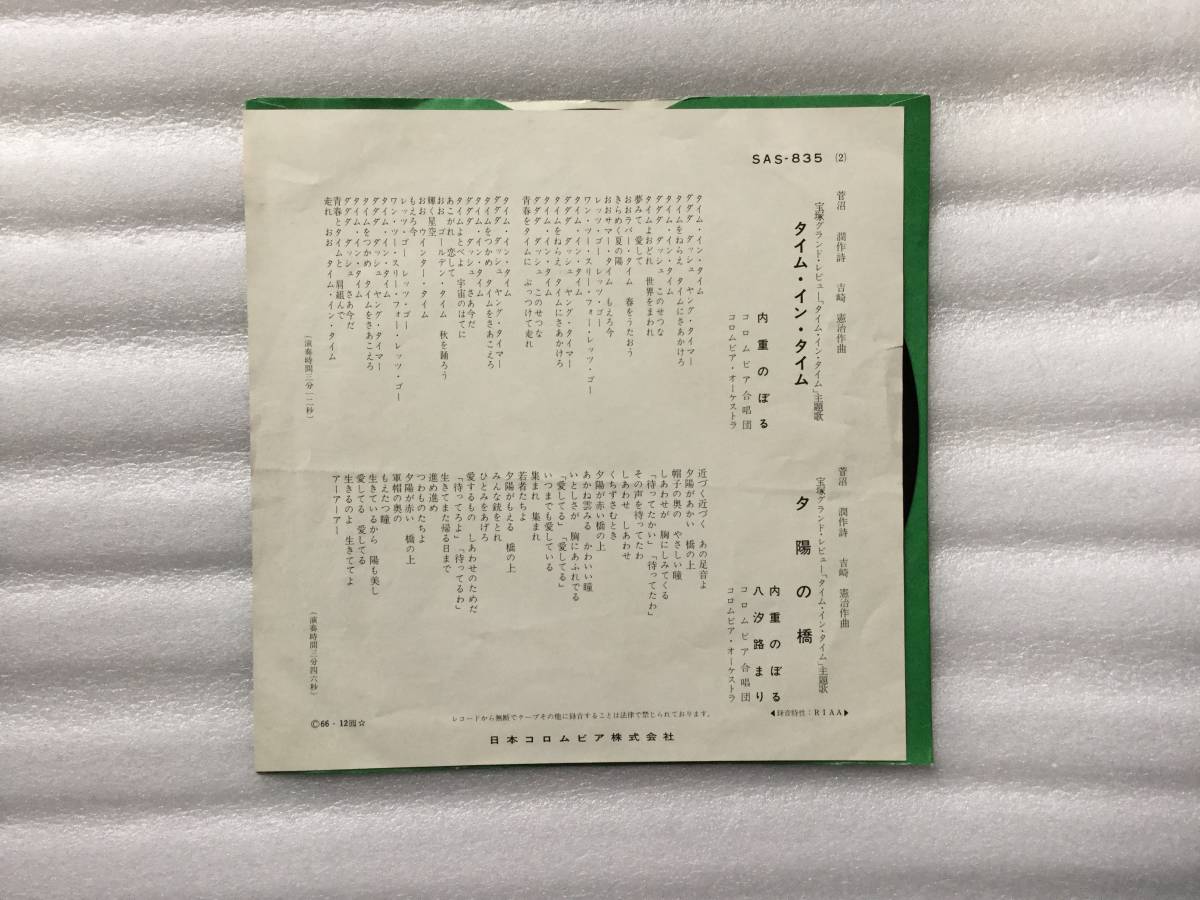 SAS-835 (2)
菅沼 潤作詩 吉崎 憲治作曲
宝塚グランド・レビュー「タイム・イン・タイム」主題歌
タイム・イン・タイム
内重のぼる
コロムビア合唱団
コロムビア・オーケストラ
タイム・イン・タイム
ダダダ ダッシュ ヤング・タイマー
タイムをねらえ タイムにさあかけろ
タイム・イン・タイム
ダダダ ダッシュ このせつな
タイムよおどれ 世界をまわれ
夢みて 愛して
おおラバー・タイム 春をうたおう
きらめく夏の陽
おおサマー・タイム もえろ今
レッツ・ゴー レッツ・ゴー
ワン・ツー・スリー・フォー・レッツ・ゴー
タイム・イン・タイム
ダダダ ダッシュ ヤング・タイマー
タイムをねらえ タイムにさあかけろ
タイム・イン・タイム
ダダダ ダッシュ このせつな
青春をタイムに ぶっつけて走れ
タイム・イン・タイム
ダダダ ダッシュ ヤング・タイマー
タイムをつかめ タイムをさあこえろ
タイム・イン・タイム
ダダダ ダッシュ さあ今だ
タイムよとべよ 宇宙のはてに
あこがれ 恋して
おお ゴールデン・タイム 秋を踊ろう
輝く星空
おお ウインター・タイム
もえろ今
レッツ・ゴー レッツ・ゴー
ワン・ツー・スリー・フォー・レッツ・ゴー
タイム・イン・タイム
ダダダ ダッシュ ヤング・タイマー
タイムをつかめ タイムをさあこえろ
タイム・イン・タイム
ダダダ ダッシュ さあ今だ
青春とタイムと 肩組んで
走れ おお タイム・イン・タイム
(演奏時間三分一二秒)
菅沼 潤作詩 吉崎 憲治作曲
宝塚グランド・レビュー「タイム・イン・タイム」主題歌
夕陽の橋
内重のぼる
八汐路まり
コロムビア合唱団
コロムビア・オーケストラ
近づく近づく あの足音よ
夕陽があかい 橋の上
帽子の奥の やさしい瞳
しあわせが 胸にしみてくる
「待ってたかい」「待ってたわ」
その声を待ってたわ
しあわせ しあわせ
くちずさむとき
夕陽が赤い橋の上
あかね雲みる かわいい瞳
いとしさが 胸にあふれでる
「愛してる」「愛してる」
いつまでも愛している
集まれ 集まれ
若者たちよ
夕陽がもえる 橋の上
みんな銃をとれ
ひとみをあげろ
愛するもの しあわせのためだ
「待ってろよ」「待ってるわ」
生きてまた帰る日まで
進め進め
つわものたちよ
夕陽が赤い 橋の上
軍帽の奥の
もえたつ瞳
生きているから 陽も美し
愛してる 愛してる
生きるのよ 生きててよ
アーアーアー
(演奏時間三分四六秒)
◀録音特性:RIAA▶
レコードから無断でテープその他に録音することは法律で禁じられております。
©66・12 ☆
日本コロムビア株式会社